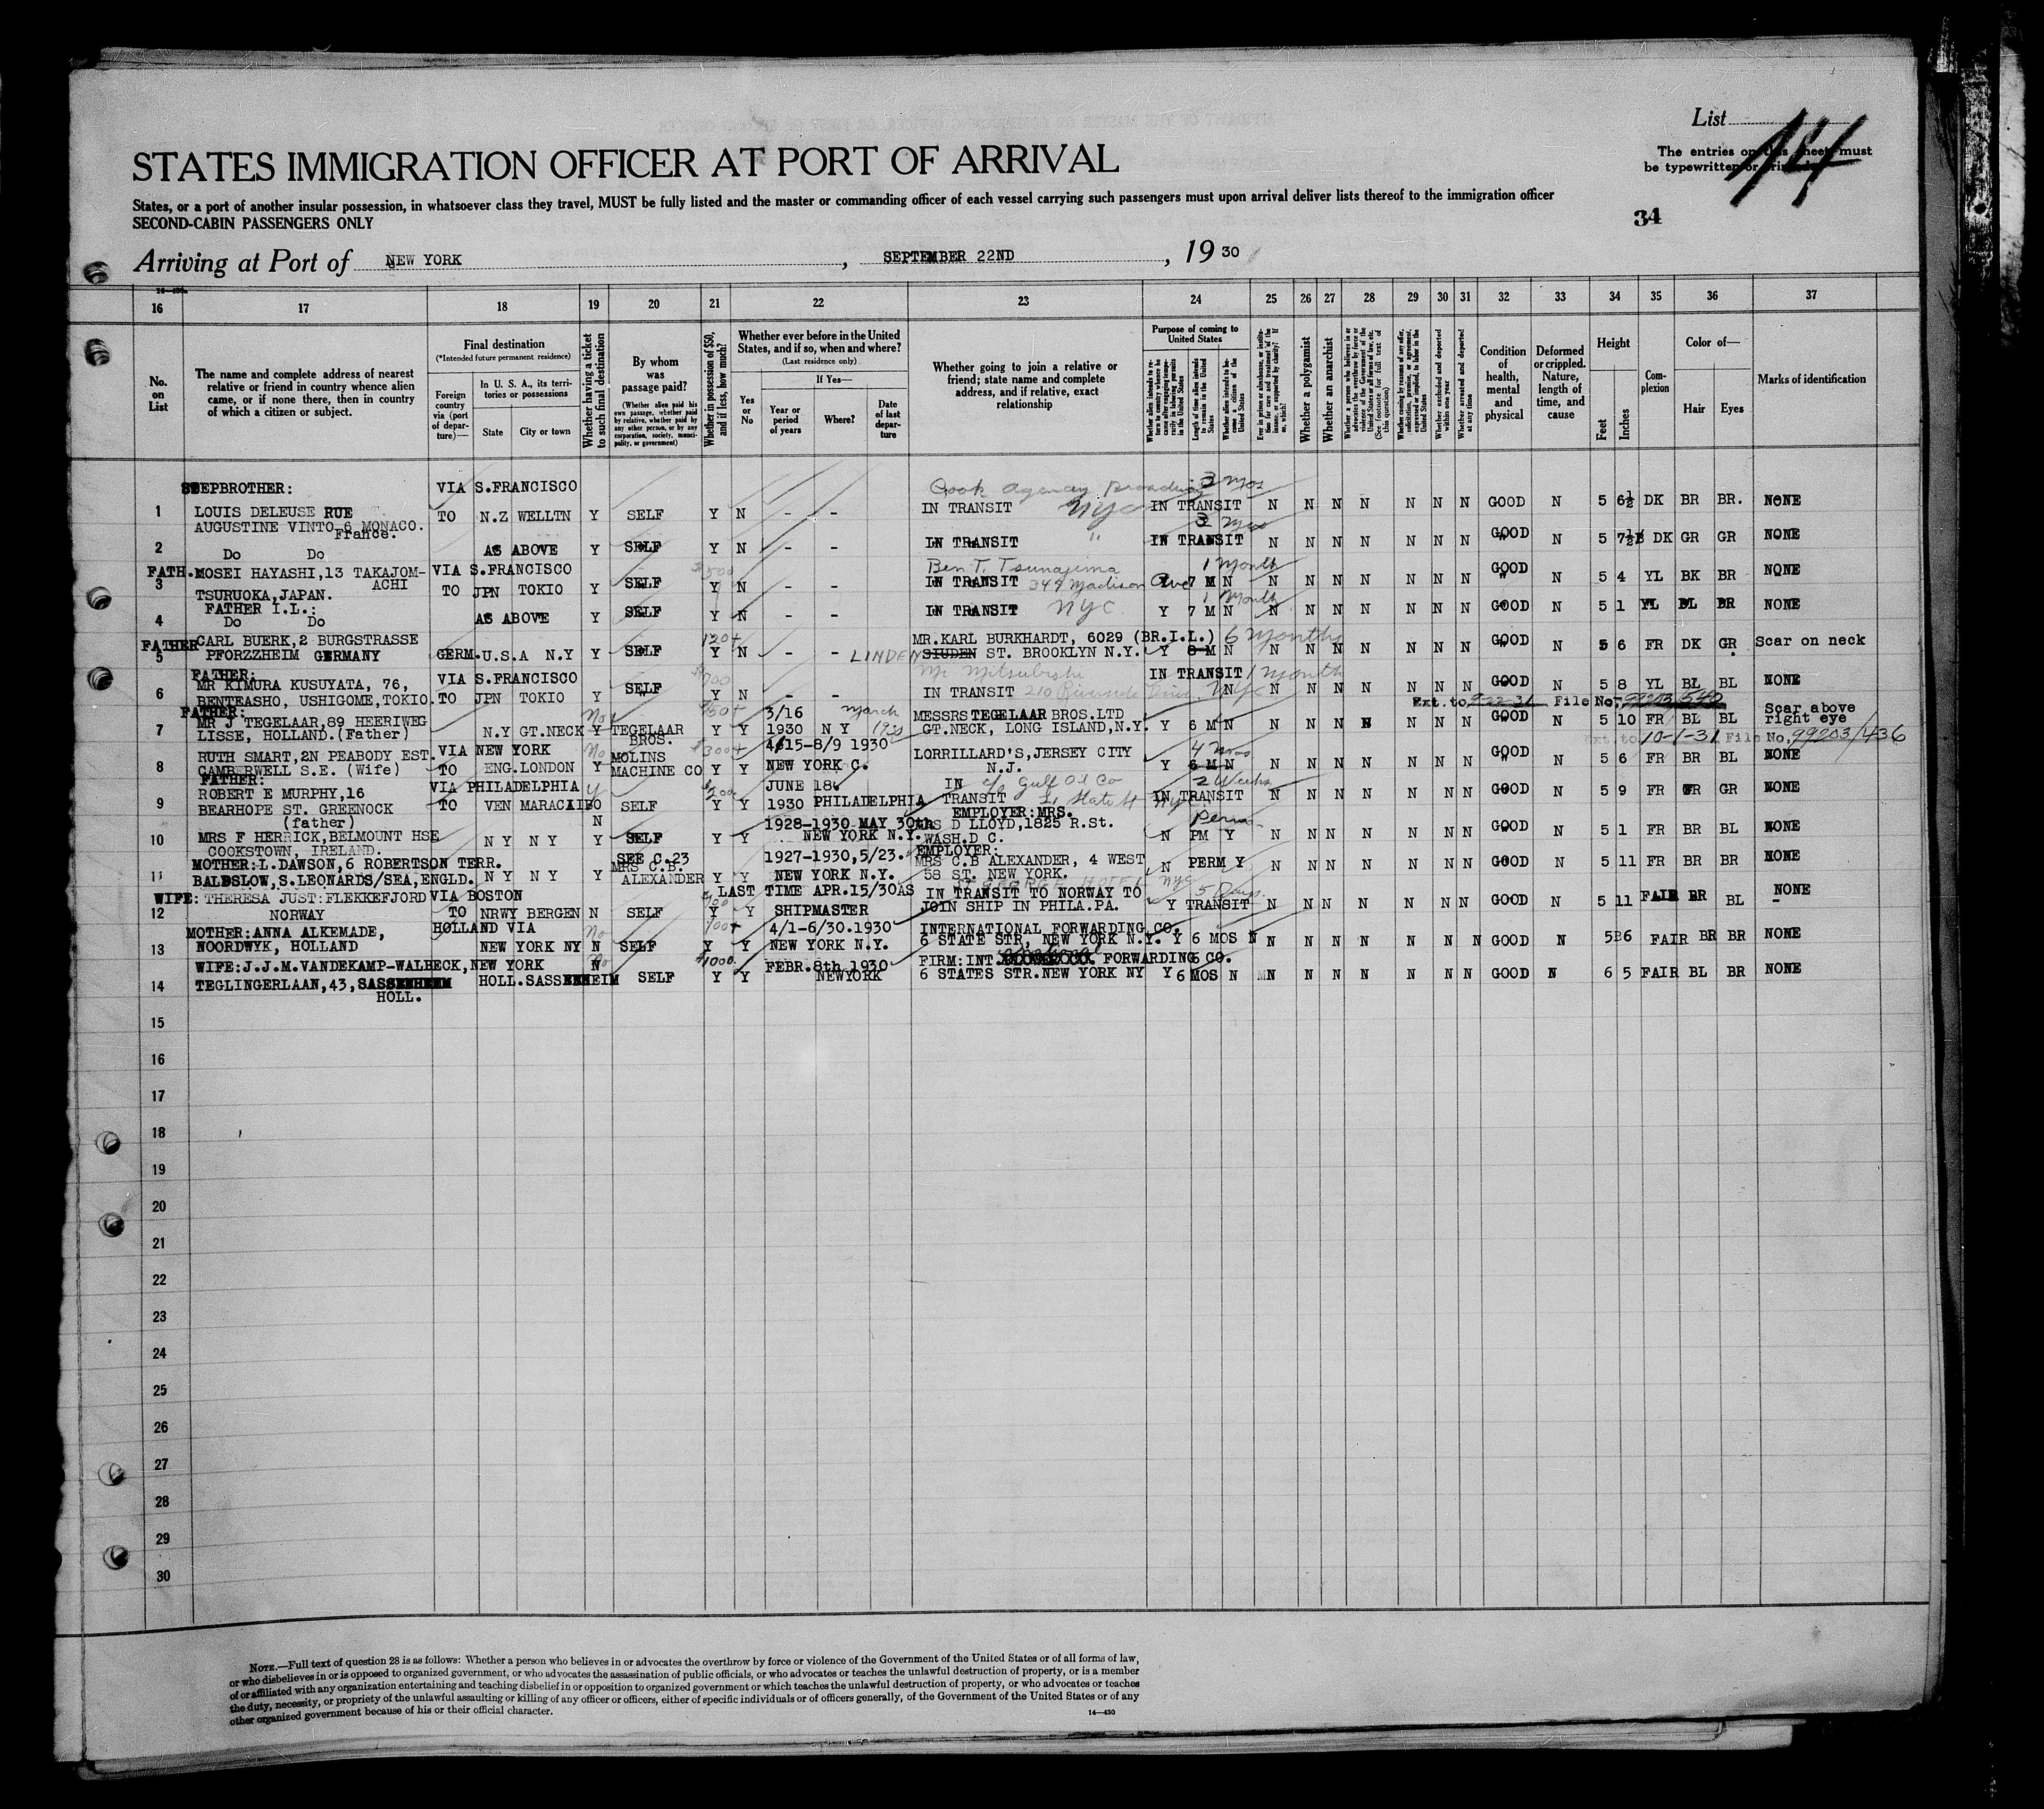 List 14
The entries on this sheet must
be typewritten or printed
STATES IMMIGRATION OFFICER AT PORT OF ARRIVAL
States, or a port of another insular possession, in whatsoever class they travel, MUST be fully listed and the master or commanding officer of each vessel carrying such passengers must upon arrival deliver lists thereof to the immigration officer
SECOND-CABIN PASSENGERS ONLY
34
Arriving at Port of NEW YORK, SEPTEMBER 22ND, 19 30
16 17 18 19 20 21 22 23 24 25 26 27 28 29 30 31 32 33 34 35 36 37
No. on List
The name and complete address of nearest relative or friend in country whence alien came, or if none there, then in country of which a citizen or subject.
Final destination
(*Intended future permanent residence)
Foreign country via (port of departure)—
In U. S. A., its territories or possessions
State
City or town
Whether having a ticket to such final destination
By whom was passage paid?
(Whether alien paid his own passage, whether paid by relative, whether paid by any other person, or by any corporation, society, municipality, or government)
Whether in possession of $50, and if less, how much?
Whether ever before in the United States, and if so, when and where?
(Last residence only)
Yes or No
If Yes—
Year or period of years
Where?
Date of last departure
Whether going to join a relative or friend; state name and complete address, and if relative, exact relationship
Purpose of coming to United States
Length of time alien intends to remain in the United States
Whether alien intends to become a citizen of the United States
Whether a polygamist
Whether an anarchist
Whether excluded and deported within one year
Whether arrested and deported at any time
Condition of health, mental and physical
Deformed or crippled. Nature, length of time, and cause
Height
Feet
Inches
Complexion
Color of—
Hair
Eyes
Marks of identification
STEPBROTHER: VIA S.FRANCISCO Cook agency Broadway 3 mos
1 LOUIS DELEUSE RUE TO N.Z WELLTN Y SELF Y N - - IN TRANSIT NYC IN TRANSIT N N N N N N N GOOD N 5 6½ DK BR BR. NONE
AUGUSTINE VINTO 6 MONACO.
France. 3 mos
2 Do Do AS ABOVE Y SELF Y N - - IN TRANSIT " IN TRANSIT N N N N N N N GOOD N 5 7½ DK GR GR NONE
FATH. MOSEI HAYASHI,13 TAKAJOM- VIA S.FRANCISCO $500 Ben T. Tsunajima 1 month
3 ACHI TO JPN TOKIO Y SELF Y N - - IN TRANSIT 349 Madison Ave 7 M N N N N N N N N GOOD N 5 4 YL BK BR NONE
TSURUOKA,JAPAN.
FATHER I.L.: 1 month
4 Do Do AS ABOVE Y SELF Y N - - IN TRANSIT NYC Y 7 M N N N N N N N N GOOD N 5 1 YL BL BR NONE
FATHER CARL BUERK,2 BURGSTRASSE 120+ MR.KARL BURKHARDT, 6029 (BR.I.L.) 6 months
5 PFORZZHEIM GERMANY GERM. U.S.A N.Y Y SELF Y N - - LINDEN STUDEN ST. BROOKLYN N.Y. Y 8 M N N N N N N N N GOOD N 5 6 FR DK GR Scar on neck
FATHER: VIA S.FRANCISCO $700 Mr Mitsubishi IN TRANSIT 1 month
6 MR KIMURA KUSUYATA, 76, SELF GOOD N 5 8 YL BL BL NONE
BENTEASHO, USHIGOME,TOKIO. TO JPN TOKIO Y Y N - - IN TRANSIT 210 Riverside Drive NYC N N N N N N N N
Ext. to 9-22-31 File No. 99203/540
FATHER: No $50+ 3/16 March MESSRS TEGELAAR BROS.LTD Scar above
7 MR J TEGELAAR,89 HEERIWEG N.Y GT.NECK Y TEGELAAR Y Y 1930 N Y GT.NECK, LONG ISLAND,N.Y. Y 6 M N N N N N N N N GOOD N 5 10 FR BL BL right eye
LISSE, HOLLAND.(Father) BROS.
Ext. to 10-1-31 File No. 99203/436
RUTH SMART,2N PEABODY EST. VIA NEW YORK No MOLINS $300+ 4/15-8/9 1930 LORRILLARD'S,JERSEY CITY 4 mos
8 CAMBERWELL S.E. (Wife) TO ENG. LONDON Y MACHINE CO Y Y NEW YORK C. N.J. Y 6 M N N N N N N N N GOOD N 5 6 FR BR BL NONE
FATHER: VIA PHILADELPHIA Y $200 JUNE 18 IN c/o Gulf Oil Co 2 Weeks
9 ROBERT E MURPHY,16 TO VEN MARACAIBO SELF Y Y 1930 PHILADELPHIA TRANSIT 21 State St NYC IN TRANSIT N N N N N N N GOOD N 5 9 FR FR GR NONE
BEARHOPE ST. GREENOCK
(father) N 1928-1930 MAY 30th EMPLOYER:MRS. Perm
10 MRS F HERRICK,BELMOUNT HSE N Y N Y Y SELF Y Y NEW YORK N.Y. MRS D LLOYD,1825 R.St. N PM Y N N N N N N N GOOD N 5 1 FR BR BL NONE
COOKSTOWN, IRELAND. WASH.D C.
MOTHER:L.DAWSON,6 ROBERTSON TERR. SEE C.23 1927-1930,5/23. EMPLOYER:
11 BALDSLOW,S.LEONARDS/SEA,ENGLD. N Y N Y Y MRS C.B. ALEXANDER Y Y NEW YORK N.Y. MRS C.B ALEXANDER, 4 WEST 58 ST. NEW YORK. N PERM Y N N N N N N N GOOD N 5 11 FR BR BR NONE
WIFE: THERESA JUST:FLEKKEFJORD VIA BOSTON $100 LAST TIME APR.15/30AS ST GEORGE HOTEL NYC 5 Days.
12 NORWAY TO NRWY BERGEN N SELF Y Y SHIPMASTER IN TRANSIT TO NORWAY TO JOIN SHIP IN PHILA.PA. Y TRANSIT N N N N N N N GOOD N 5 11 FAIR BR BL NONE
MOTHER:ANNA ALKEMADE, HOLLAND VIA No 100+ 4/1-6/30.1930 INTERNATIONAL FORWARDING CO.
13 NOORDWYK, HOLLAND NEW YORK NY N SELF Y Y NEW YORK N.Y. 6 STATE STR, NEW YORK N.Y. Y 6 MOS N N N N N N N N GOOD N 5 6 FAIR BR BR NONE
WIFE:J.J.M.VANDEKAMP-WALBECK, NEW YORK N No $1000. FEBR.8th 1930 FIRM:INT. FORWARDING CO.
14 TEGLINGERLAAN,43,SASSENHEIM HOLL. SASSENHEIM SELF Y Y NEWYORK 6 STATES STR.NEW YORK NY Y 6 MOS N N N N N N N N GOOD N 6 5 FAIR BL BR NONE
HOLL.
15
16
17
18
19
20
21
22
23
24
25
26
27
28
29
30
NOTE.—Full text of question 28 is as follows: Whether a person who believes in or advocates the overthrow by force or violence of the Government of the United States or of all forms of law,
or who disbelieves in or is opposed to organized government, or who advocates the assassination of public officials, or who advocates or teaches the unlawful destruction of property, or is a member
of or affiliated with any organization entertaining and teaching disbelief in or opposition to organized government or which teaches the unlawful destruction of property, or who advocates or teaches
the duty, necessity, or propriety of the unlawful assaulting or killing of any officer or officers, either of specific individuals or of officers generally, of the Government of the United States or of any
other organized government because of his or their official character.
14—430